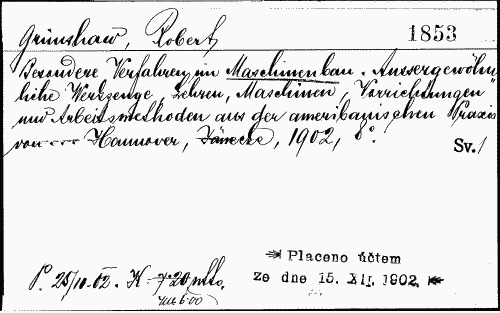 Grimshaw, Robert
1853
Besondere Verfahren im Maschinenbau. Aussergewöhn-
liche Werkzeuge, Lehren, Maschinen, Vorrichtungen
und Arbeitsmethoden aus der amerikanischen Praxis
von --- Hannover, Jänecke, 1902, 8°.
Sv. 1
P. 25/10. 02. K 7·20 ntto.
6·00
Placeno účtem
ze dne 15. XII. 1902.